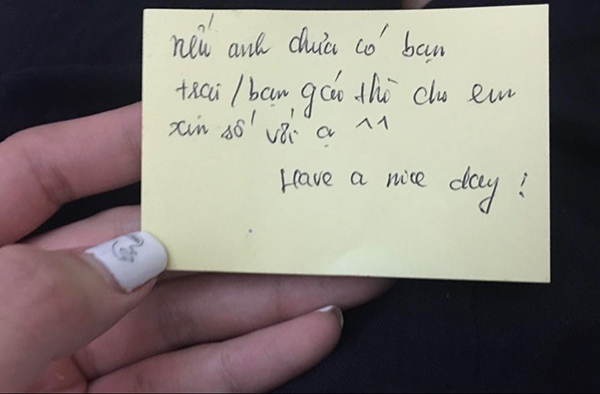 nếu anh chưa có bạn
trai/bạn gái thì cho em
xin số với ạ ^^
Have a nice day!